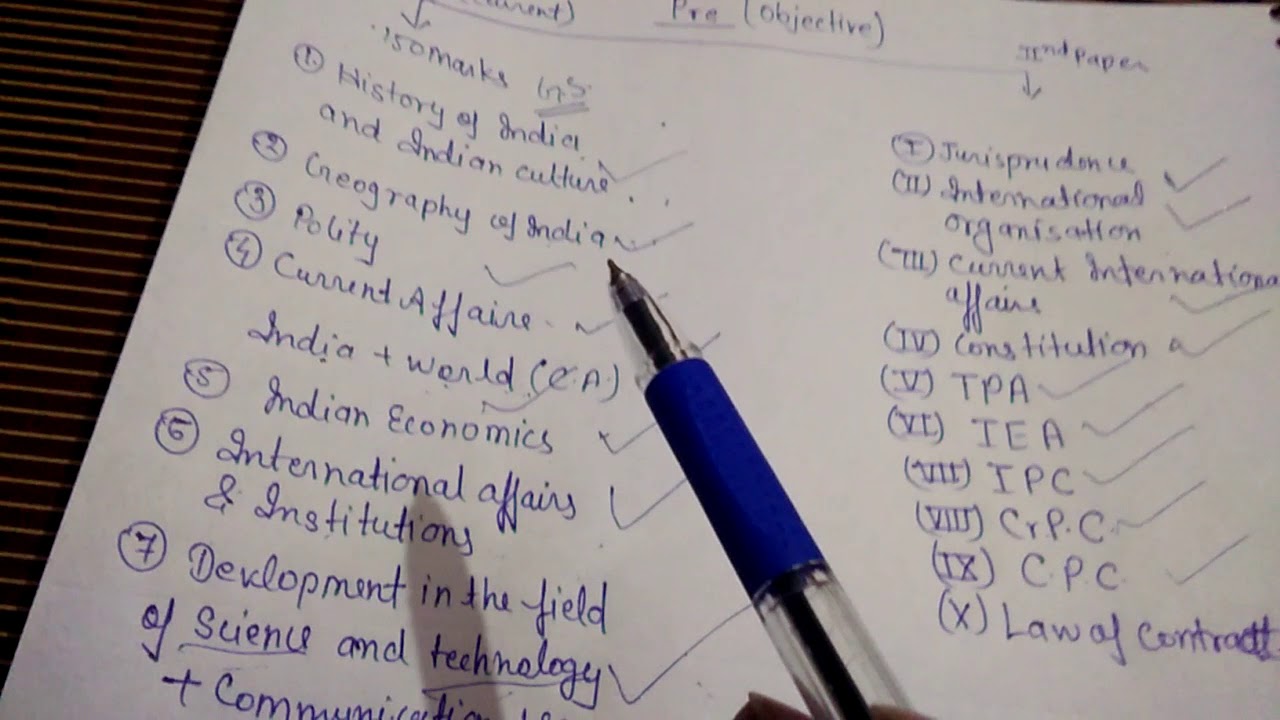 Pre (Objective)
150 marks G.S.
① History of India
and Indian culture
② Geography of India
③ Polity
④ Current Affairs
India + world (C.A.)
⑤ Indian Economics
⑥ International affairs
& Institutions
⑦ Devlopment in the field
of Science and technology
+ Communication
IInd Paper
(I) Jurisprudence
(II) International
organisation
(III) Current International
affairs
(IV) Constitution
(V) TPA
(VI) IEA
(VII) IPC
(VIII) Cr.P.C.
(IX) C.P.C.
(X) Law of Contract